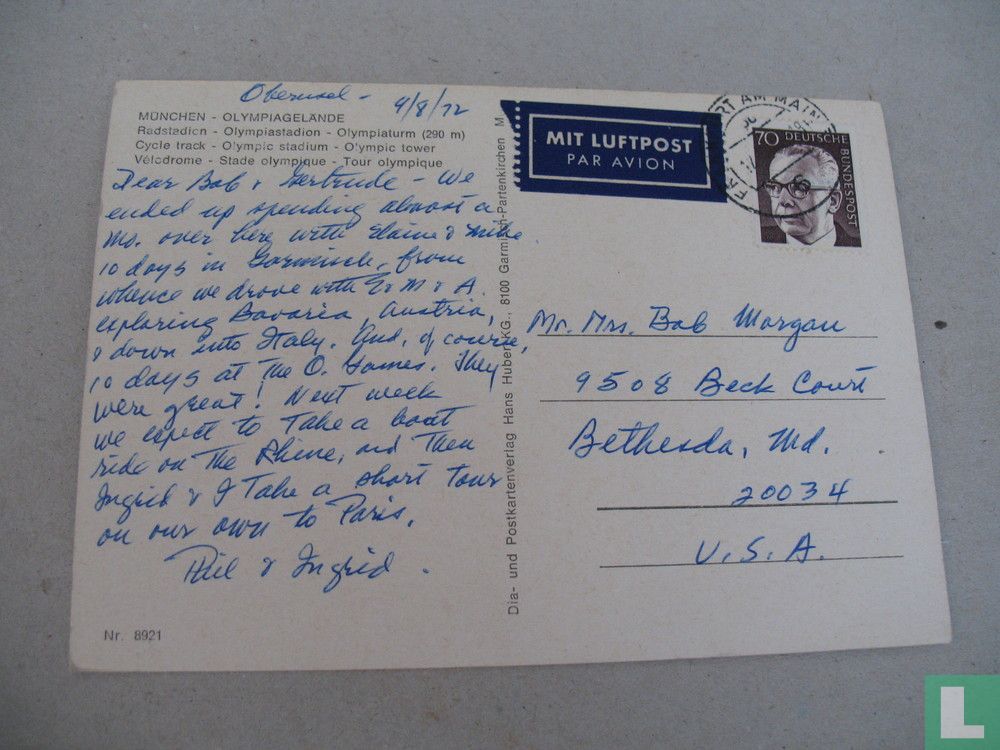 Oberusel - 9/8/72
MÜNCHEN - OLYMPIAGELÄNDE
Radstadion - Olympiastadion - Olympiaturm (290 m)
Cycle track - Olympic stadium - Olympic tower
Vélodrome - Stade olympique - Tour olympique
Dear Bob & Gertrude - We
ended up spending almost a
Mo. over here with Elaine & Mike
10 days in Garmisch, from
whence we drove with E & M & A.
exploring Bavaria, Austria,
& down into Italy. And, of course,
10 days at The O. Games. They
were great! Next week
we expect to Take a boat
ride on The Rhine, and Then
Ingrid & I Take a short Tour
on our own to Paris.
Phil & Ingrid.
Nr. 8921
Dia- und Postkartenverlag Hans Huber KG., 8100 Garmisch-Partenkirchen M
MIT LUFTPOST
PAR AVION
RT AM MAIN
70 DEUTSCHE BUNDESPOST
Mr. Mrs. Bob Morgan
9508 Beck Court
Bethesda, Md.
20034
U.S.A.
L